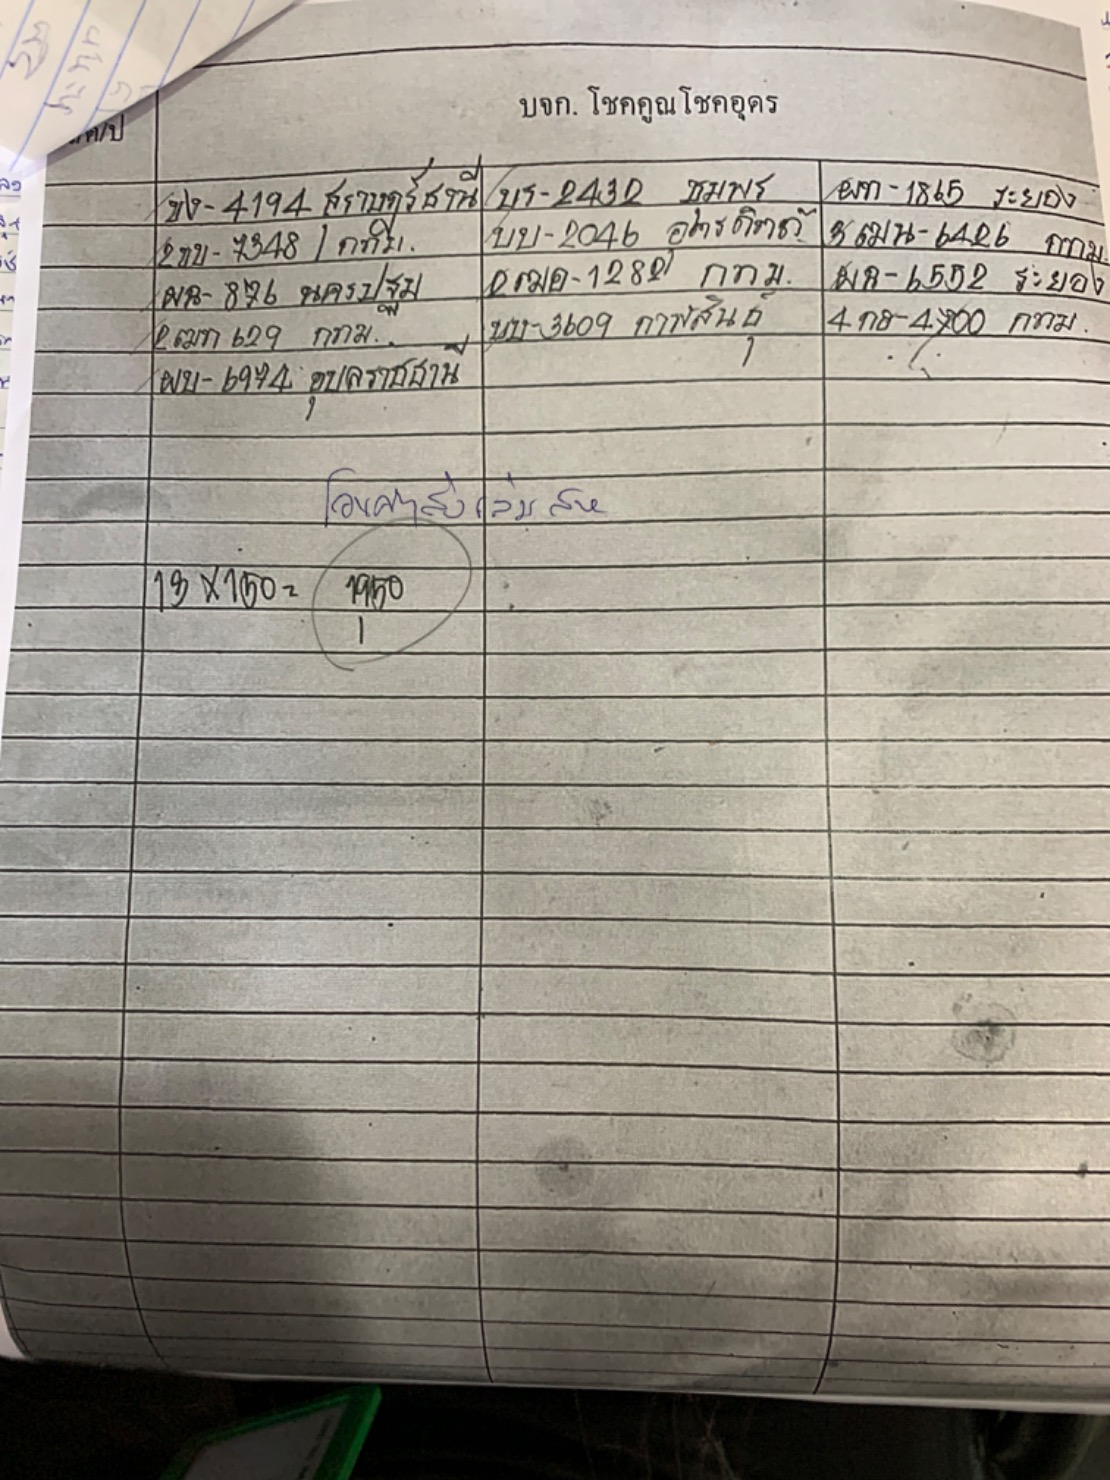 บจก. โชคคูณโชคอุดร
ขง-4194 สุราษฎร์ธานี บร-2432 ชุมพร ผท-1865 ระยอง
2ขบ-7348 กทม. บบ-2046 อุตรดิตถ์ 3ฒน-6426 กทม.
ผล-876 นครปฐม 2ฒด-1282 กทม. ผล-6552 ระยอง
2ฒท 629 กทม. บบ-3609 กาฬสินธุ์ 4กธ-4700 กทม.
ผบ-6974 อุบลราชธานี
13 X 150 = 1950